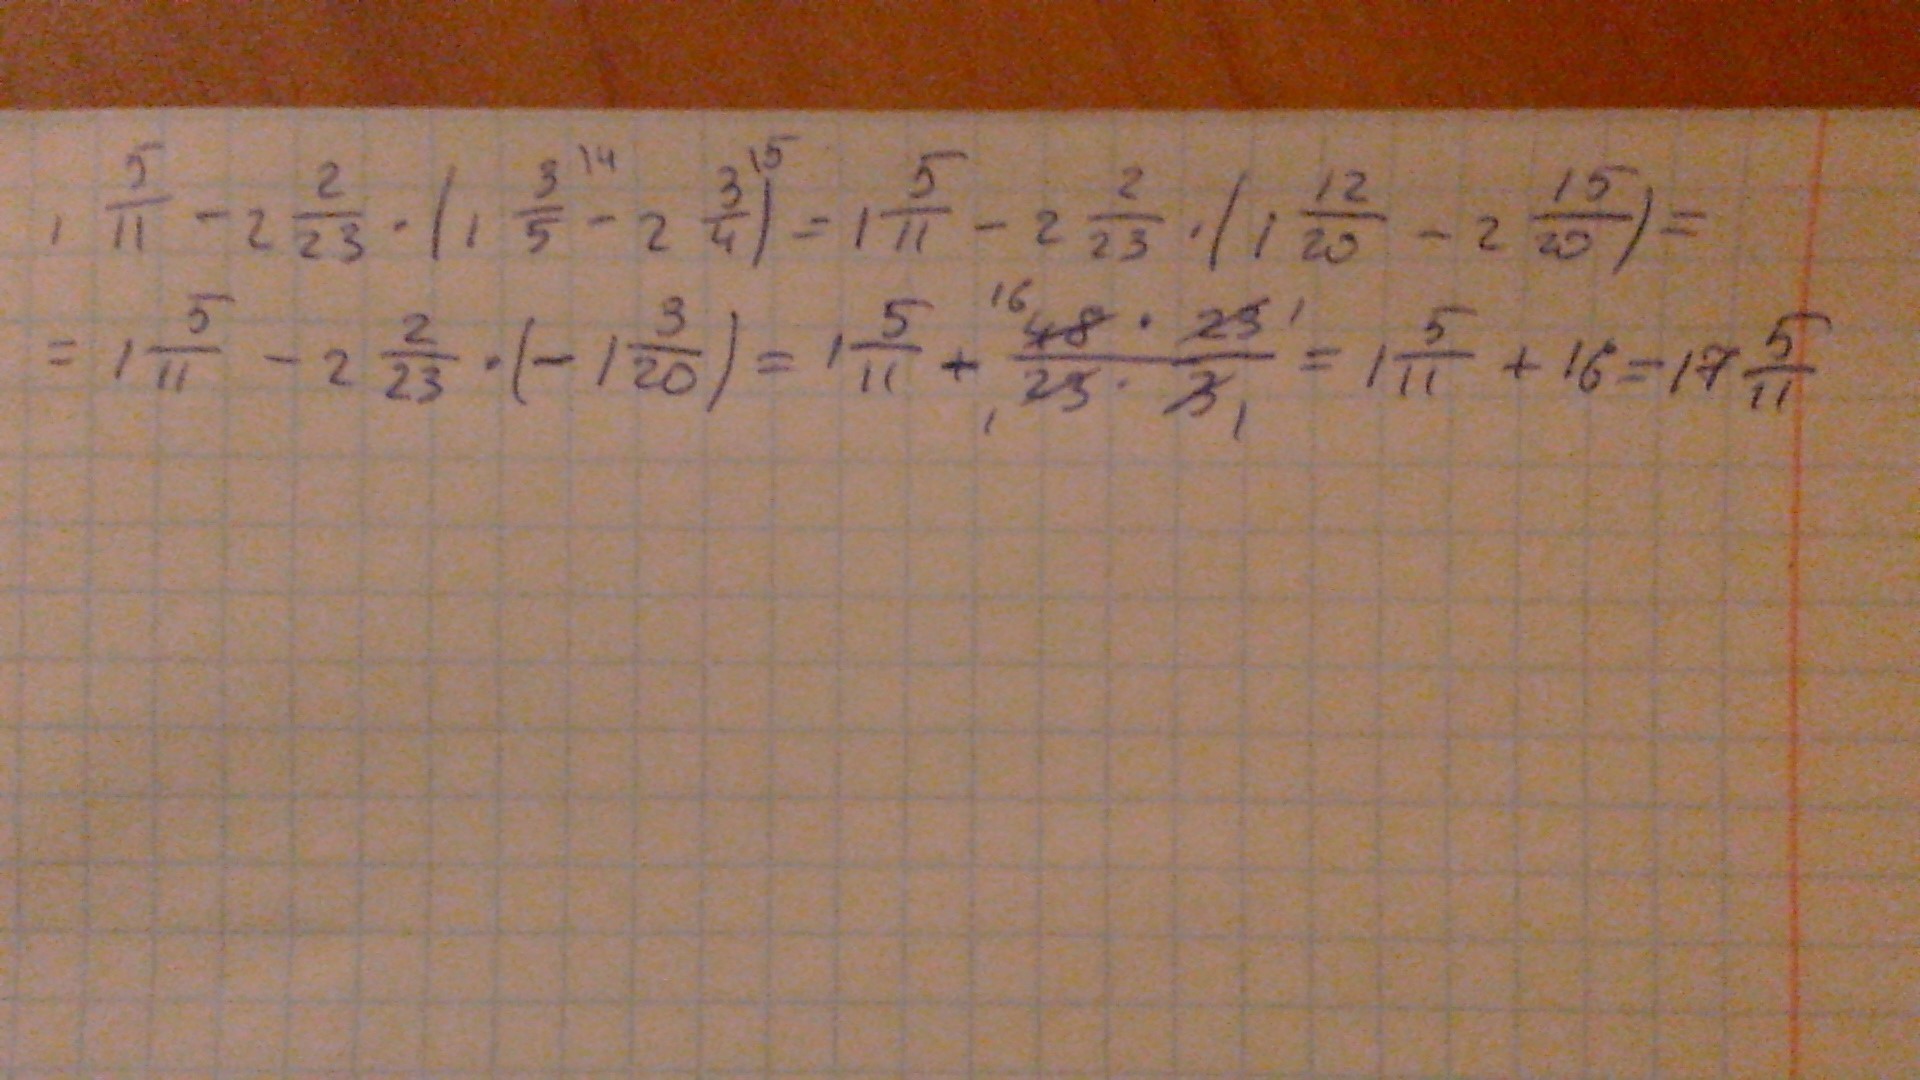 1 5/11 - 2 2/23 · (1 3/5 \4 - 2 3/4 \5) = 1 5/11 - 2 2/23 · (1 12/20 - 2 15/20) =
= 1 5/11 - 2 2/23 · (-1 3/20) = 1 5/11 + 16 48 · 23 1 / 1 23 · 3 1 = 1 5/11 + 16 = 17 5/11